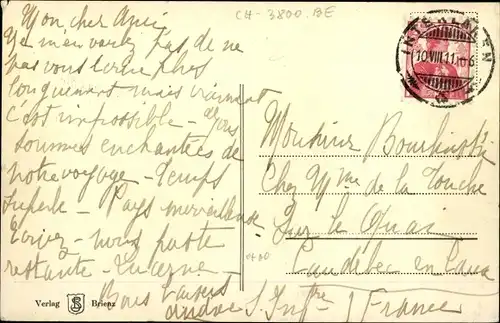 CH-3800.BE
Mon cher Ami
Ne m'en voulez pas de ne
pas vous écrire plus
longuement mais vraiment
c'est impossible - Nous
sommes enchantées de
notre voyage - Temps
superbe - Pays merveilleux
Ecrivez-nous poste
restante - Lucerne -
Bons baisers
INTERLAKEN
10.VIII.11.
Monsieur
Chez Mme de la Touche
Sur le Quai
Caudebec en Caux
S. Infre France
Verlag Brienz